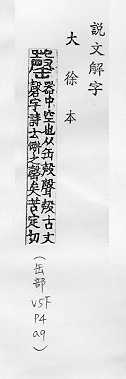 說文解字
大徐本
罄
器中空也从缶殸聲殸古文
磬字詩云缾之罄矣苦定切
（缶部
V5下
P4
a9）